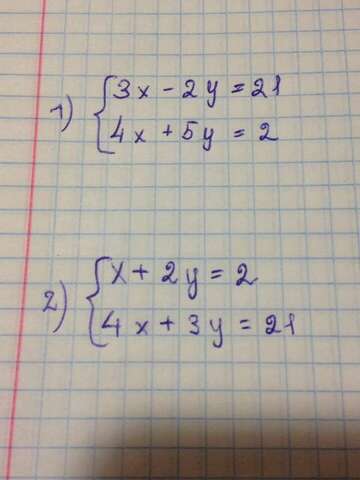 1) { 3x - 2y = 21
4x + 5y = 2
2) { x + 2y = 2
4x + 3y = 21